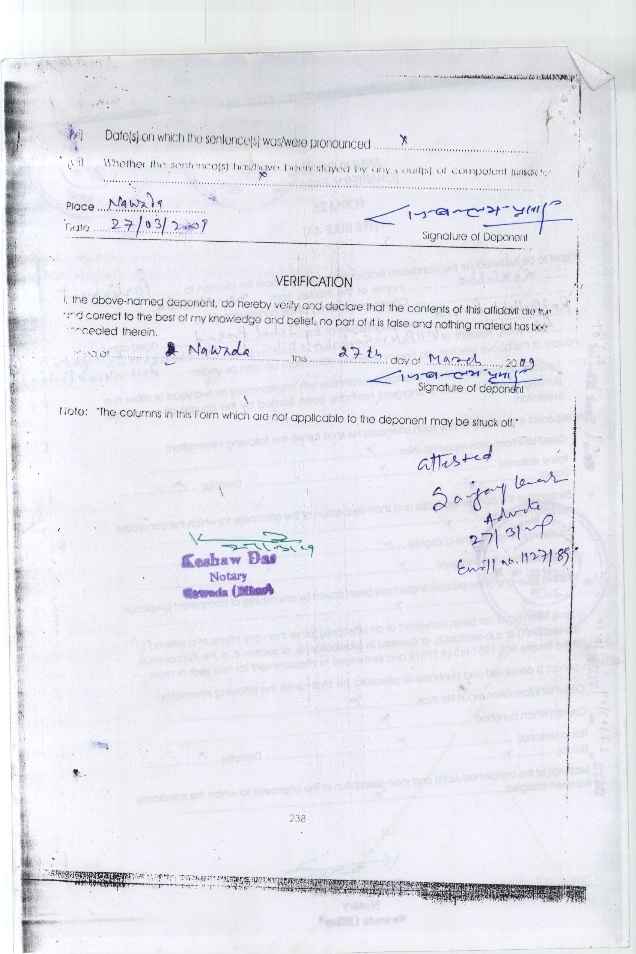 Date(s) on which the sentence(s) was/were pronounced ........ x
Whether the sentence(s) has/have been stayed by any court(s) of competent
x
Place ... Nawada
Date ... 27/03/2009
Signature of Deponent
VERIFICATION
I, the above-named deponent, do hereby verify and declare that the contents of this affidavit are true
and correct to the best of my knowledge and belief, no part of it is false and nothing material has been
concealed therein.
Nawada this 27th day of March, 2009
Signature of deponent
Note: "The columns in this Form which are not applicable to the deponent may be struck off."
attested
Sanjay Kumar
Advocate
27/3/09
Enrll no. 1127/89
27/03/09
Keshaw Das
Notary
Nawada (Bihar)
238